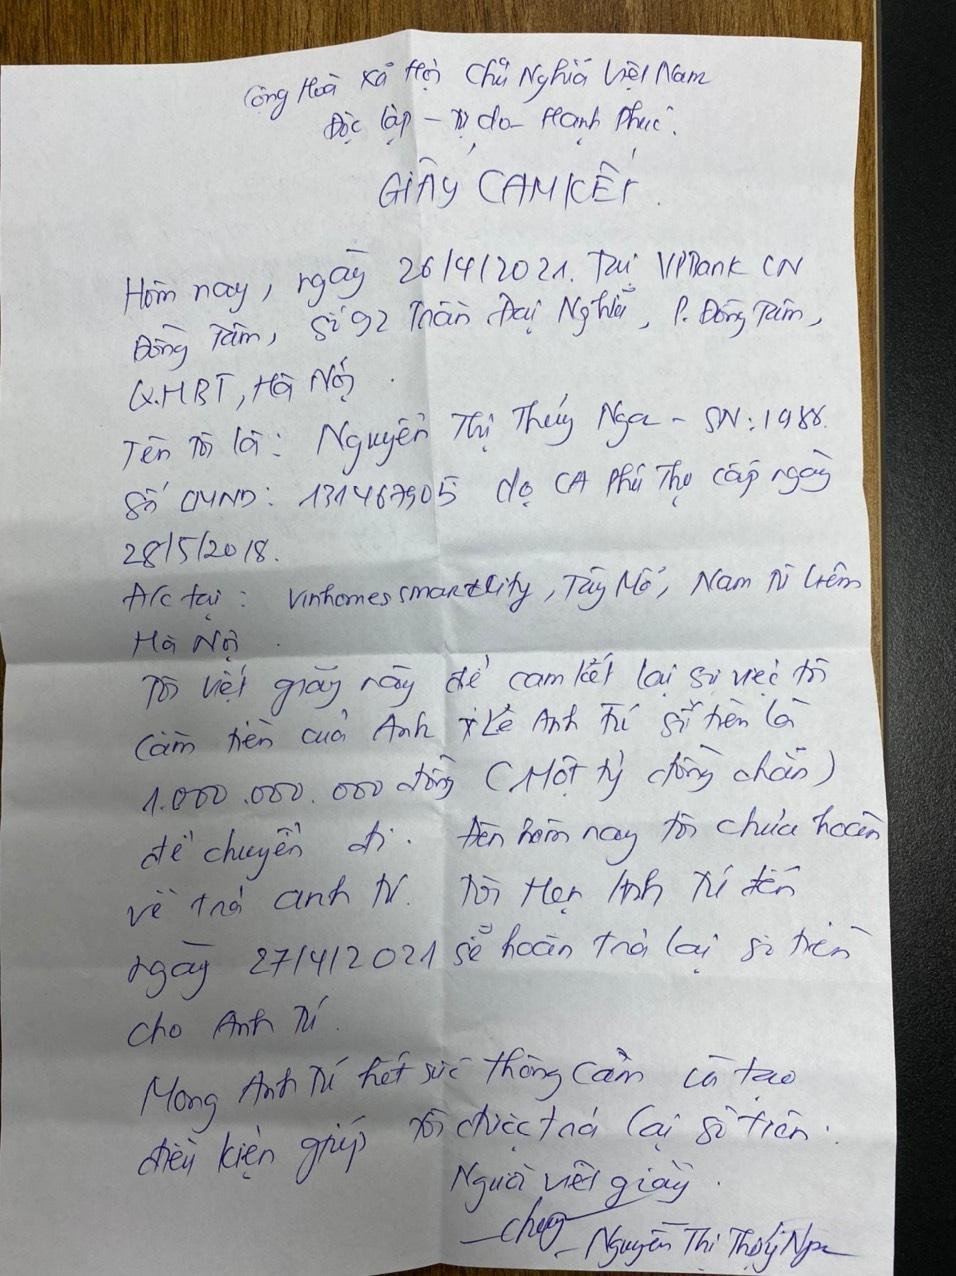 Cộng Hoà Xã Hội Chủ Nghĩa Việt Nam
Độc lập - Tự do - Hạnh Phúc.
GIẤY CAM KẾT.
Hôm nay, ngày 26/4/2021. Tại VPBank CN
Đồng Tâm, Số 92 Trần Đại Nghĩa, P. Đồng Tâm,
Q.HBT, Hà Nội.
Tên tôi là: Nguyễn Thị Thuý Nga - SN: 1988.
Số CMND: 131467905 do CA Phú Thọ cấp ngày
28/5/2018.
Đ/c tại: Vinhomes smartCity, Tây Mỗ, Nam Từ Liêm
Hà Nội.
Tôi viết giấy này để cam kết lại sự việc tôi
cầm tiền của Anh Lê Anh Tú số tiền là
1.000.000.000 đồng (Một tỷ đồng chẵn)
để chuyển đi. Đến hôm nay tôi chưa hoàn
về trả anh Tú. Tôi Hẹn Anh Tú đến
ngày 27/4/2021 sẽ hoàn trả lại số tiền
cho Anh Tú.
Mong Anh Tú hết sức thông cảm và tạo
điều kiện giúp tôi được trả lại số tiền.
Người viết giấy.
Nguyễn Thị Thuý Nga